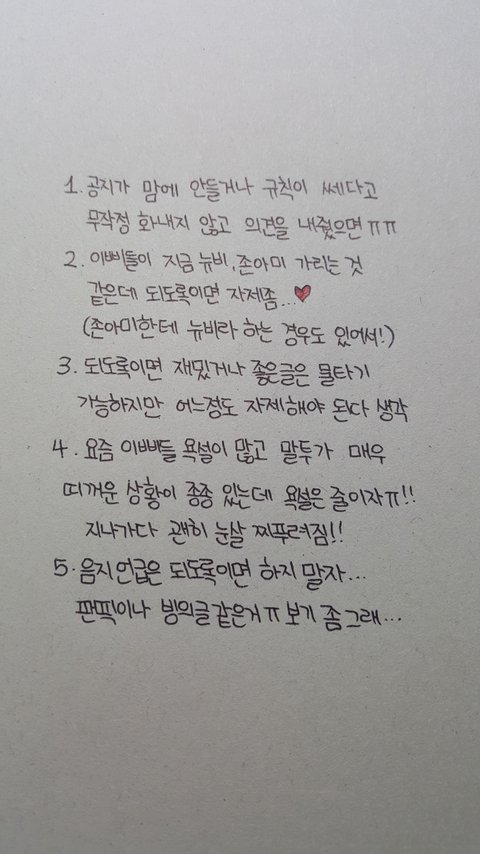 1. 공지가 맘에 안들거나 규칙이 쎄다고
무작정 화내지 않고 의견을 내줬으면 ㅠㅠ
2. 이삐들이 지금 뉴비, 존아미 가리는 것
같은데 되도록이면 자제좀...♥
(존아미한테 뉴비라 하는 경우도 있어서!)
3. 되도록이면 재밌거나 좋은글은 물타기
가능하지만 어느정도 자제해야 된다 생각
4. 요즘 이삐들 욕설이 많고 말투가 매우
띠꺼운 상황이 종종 있는데 욕설은 줄이자ㅠ!!
지나가다 괜히 눈살 찌푸려짐!!
5. 음지언급은 되도록이면 하지 말자...
판픽이나 빙의글같은거ㅠ 보기 좀 그래...